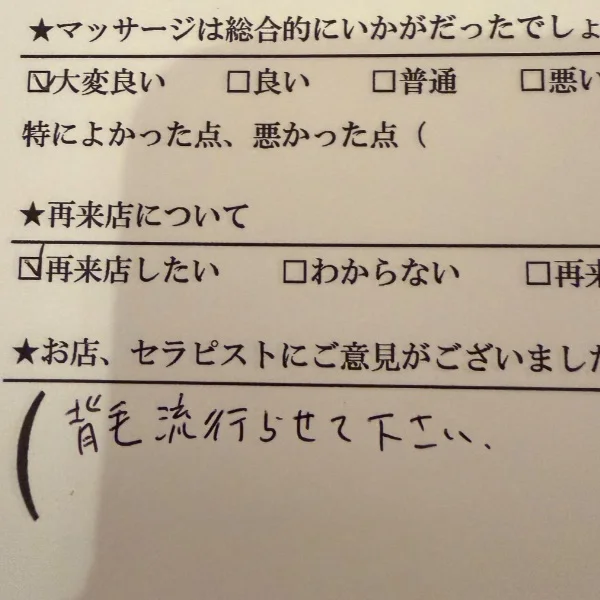 ★マッサージは総合的にいかがだったでしょ
☑大変良い □良い □普通 □悪い
特によかった点、悪かった点（
★再来店について
☑再来店したい □わからない □再来
★お店、セラピストにご意見がございました
（背毛流行らせて下さい、